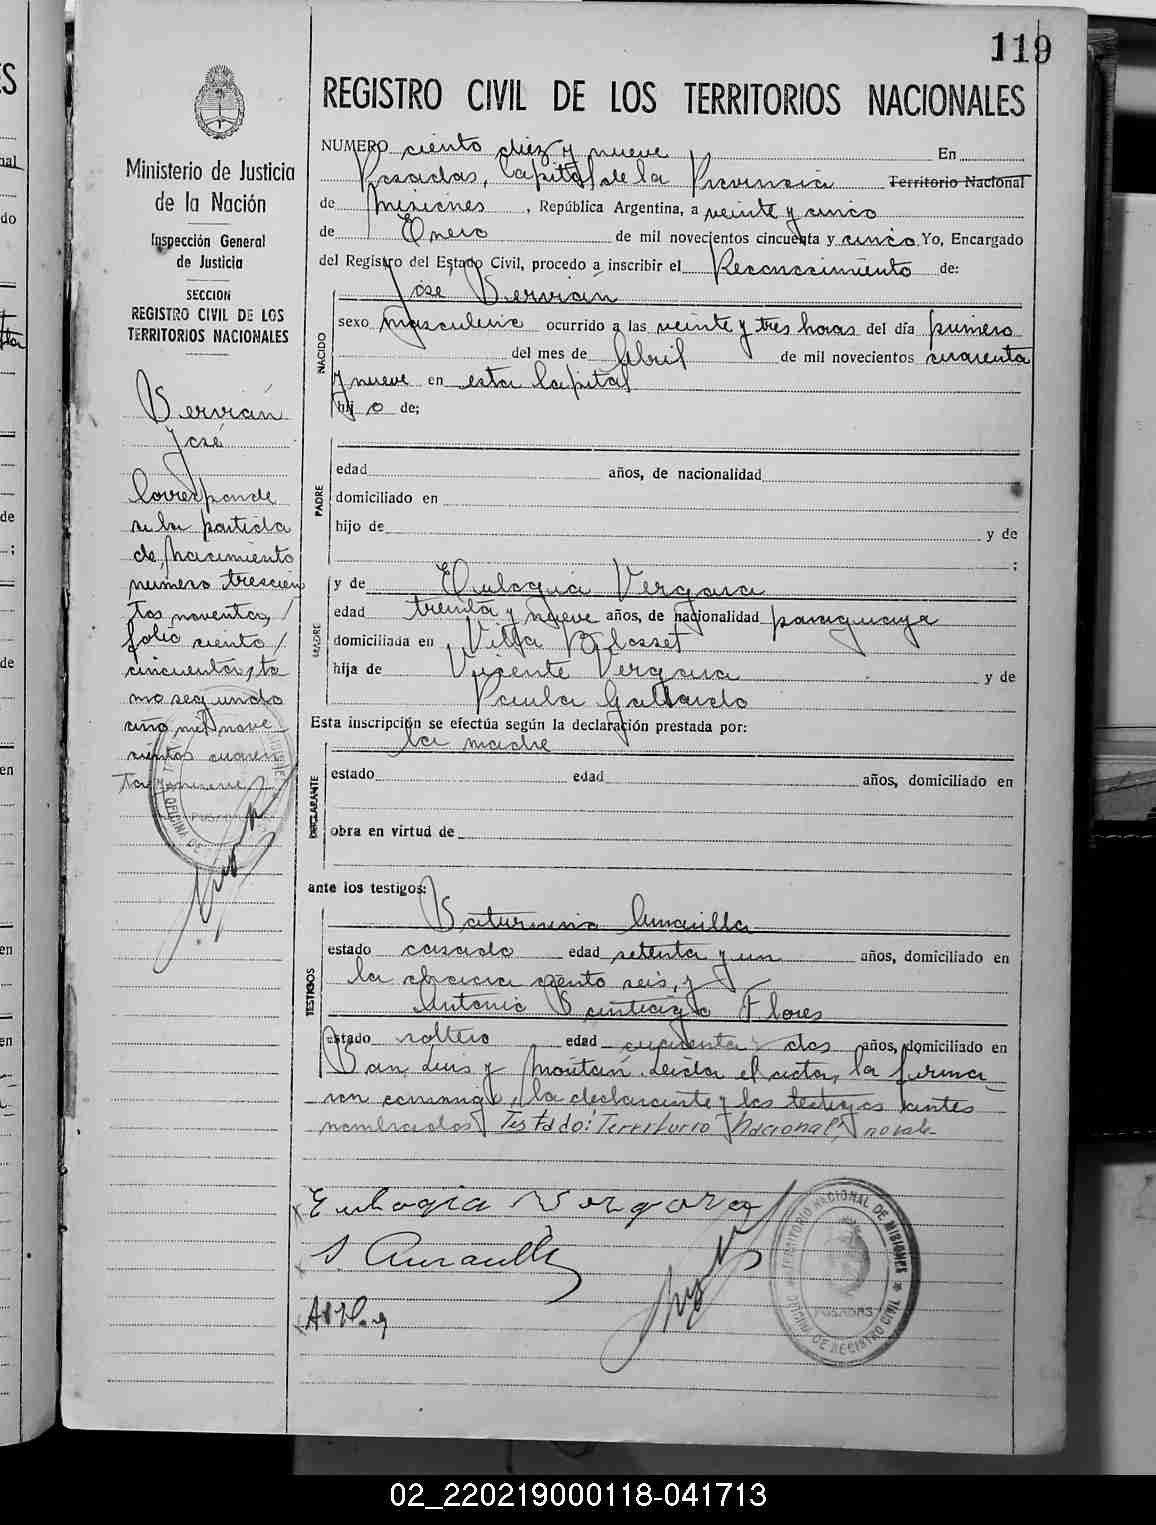 119
REGISTRO CIVIL DE LOS TERRITORIOS NACIONALES
Ministerio de Justicia
de la Nación
Inspección General
de Justicia
SECCION
REGISTRO CIVIL DE LOS
TERRITORIOS NACIONALES
Bervián
José
Corresponde
a la partida
de nacimiento
numero trescien
tos noventa,
folio ciento
cincuenta, to
mo segundo
año mil nove
cientos cuaren
ta y nueve
NUMERO ciento diez y nueve En
Posadas, Capital de la Provincia Territorio Nacional
de Misiones, República Argentina, a veinte y cinco
de Enero de mil novecientos cincuenta y cinco Yo, Encargado
del Registro del Estado Civil, procedo a inscribir el Reconocimiento de:
José Bervián
NACIDO
sexo masculino ocurrido a las veinte y tres horas del día primero
del mes de Abril de mil novecientos cuarenta
y nueve en esta Capital
hijo de;
PADRE
edad años, de nacionalidad
domiciliado en
hijo de y de
;
MADRE
y de Eulogia Vergara
edad treinta y nueve años, de nacionalidad paraguaya
domiciliada en Villa Blosset
hija de Vicente Vergara y de
Paula Gallardo
Esta inscripción se efectúa según la declaración prestada por:
la madre
DECLARANTE
estado edad años, domiciliado en
obra en virtud de
ante los testigos:
Saturnino Amarilla
TESTIGOS
estado casado edad setenta y un años, domiciliado en
la chacra ciento seis, y
Antonio Santiago Flores
estado soltero edad cuarenta y dos años, domiciliado en
San Luis y Moritán. Leída el acta, la firma
ron conmigo, la declarante y los testigos antes
nombrados Testado: "Territorio Nacional", no vale-
Eulogia Vergara
S. Amarilla
TERRITORIO NACIONAL DE MISIONES
POSADAS
OFICINA DE REGISTRO CIVIL
02_220219000118-041713